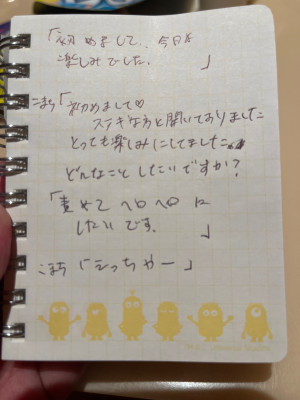 「初めまして、今日は
楽しみでした。」
こまち「初めまして♡
ステキな方と聞いておりました
とっても楽しみにしてました。
どんなことしたいですか？
「責めてヘロヘロに
したいです。」
こまち「えっちゃー」